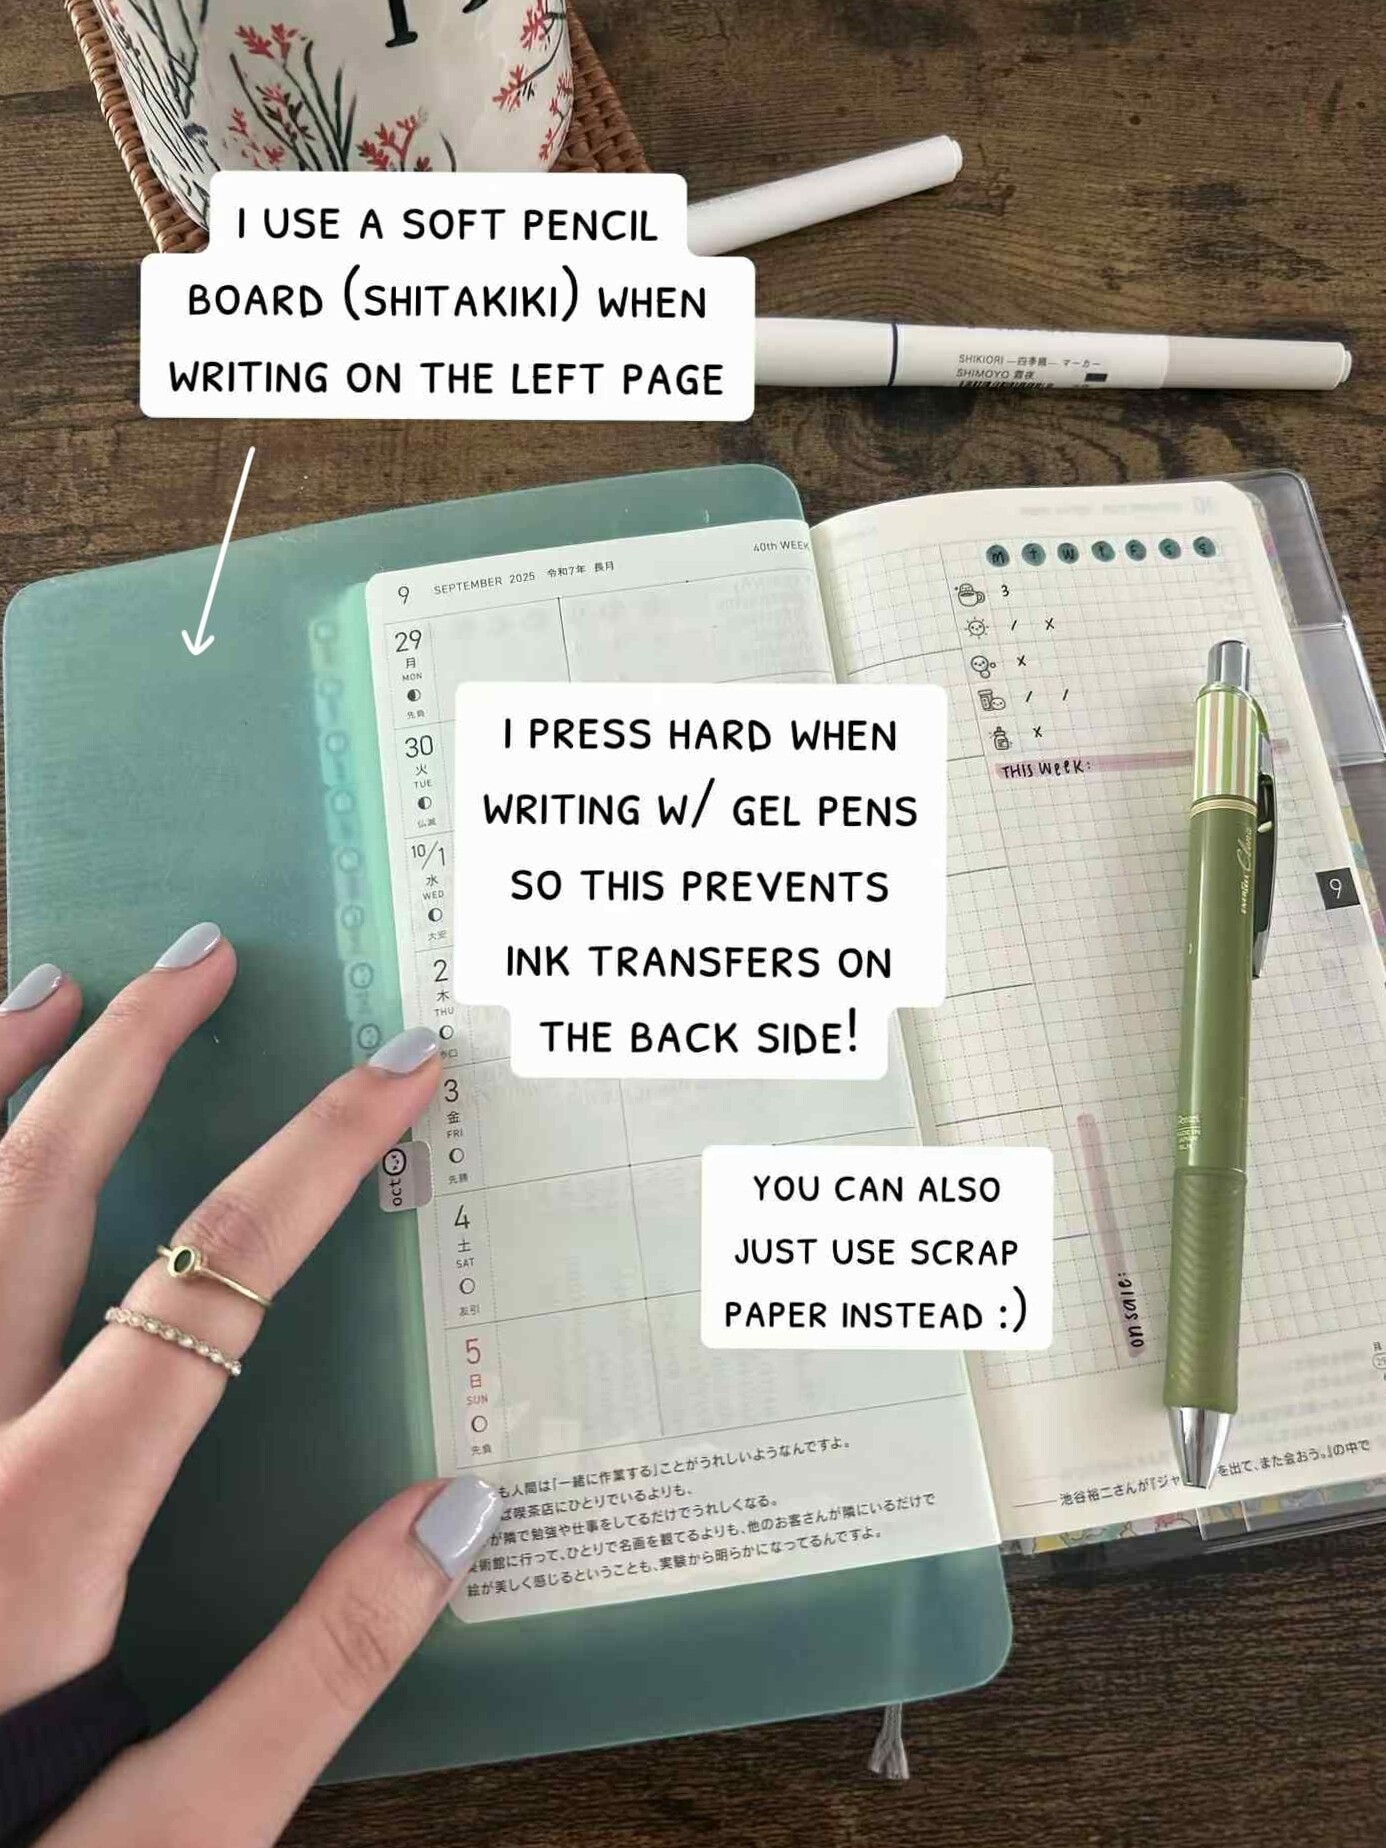 I USE A SOFT PENCIL
BOARD (SHITAKIKI) WHEN
WRITING ON THE LEFT PAGE
SHIKIORI —四季織— マーカー
SHIMOYO 霜夜
9 SEPTEMBER 2025 令和7年 長月
40th WEEK
29
月
MON
先負
30
火
TUE
仏滅
10/1
水
WED
大安
2
木
THU
赤口
3
金
FRI
先勝
4
土
SAT
友引
5
日
SUN
先負
oct
I PRESS HARD WHEN
WRITING W/ GEL PENS
SO THIS PREVENTS
INK TRANSFERS ON
THE BACK SIDE!
YOU CAN ALSO
JUST USE SCRAP
PAPER INSTEAD :)
M T W T F S S
3
/ X
X
/ /
X
THIS WEEK:
9
on sale:
Pentel
も人間は「一緒に作業する」ことがうれしいようなんですよ。
ば喫茶店にひとりでいるよりも、
が隣で勉強や仕事をしてるだけでうれしくなる。
術館に行って、ひとりで名画を観てるよりも、他のお客さんが隣にいるだけで
絵が美しく感じるということも、実験から明らかになってるんですよ。
——池谷裕二さんが『ジャ
を出て、また会おう。』の中で